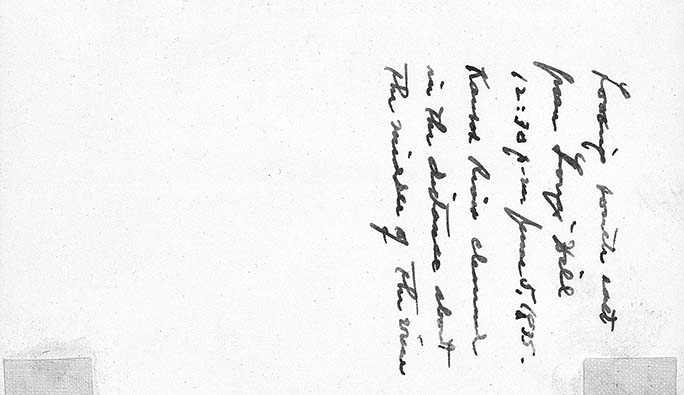 Looking south east
from Hill
12:30 p-m June 5, 1935.
Kansas River channel
in the distance about
the middle of the view